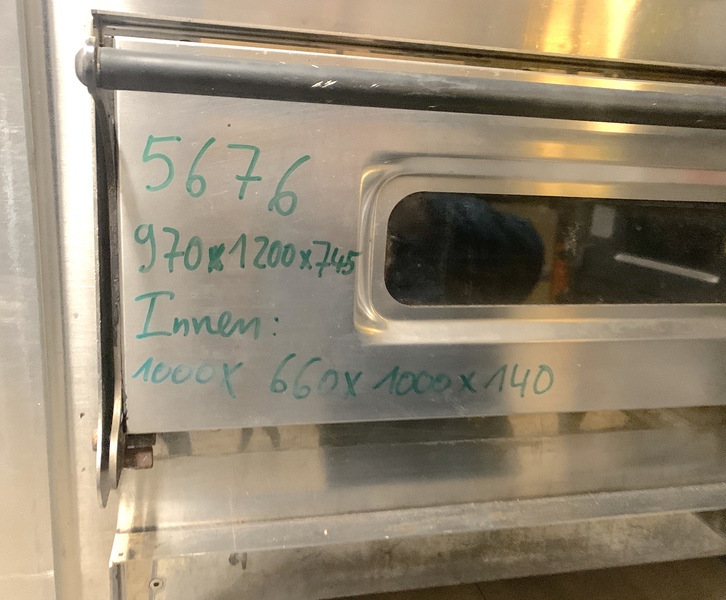 5676
970x1200x745
Innen:
1000x 660x1000x140